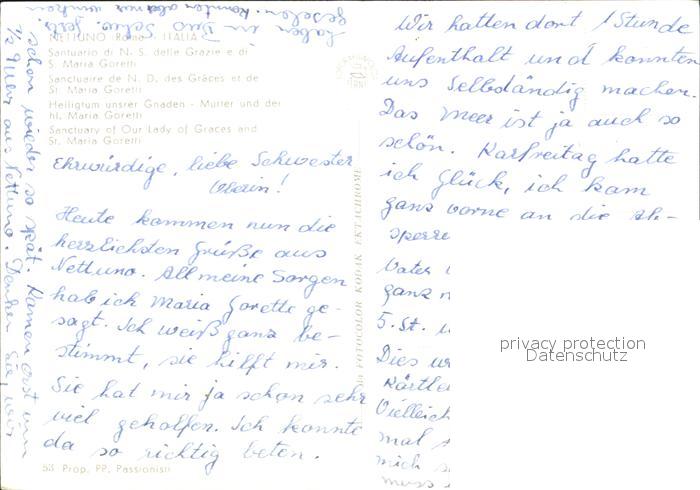 NETTUNO (Roma) ITALIA
Santuario di N. S. delle Grazie e di
S. Maria Goretti
Sanctuaire de N. D. des Grâces et de
St. Maria Goretti
Heiligtum unsrer Gnaden - Mutter und der
hl. Maria Goretti
Sanctuary of Our Lady of Graces and
St. Maria Goretti
Ehrwürdige, liebe Schwester
Oberin!
Heute kommen nun die
herzlichsten Grüße aus
Nettuno. All meine Sorgen
hab ich Maria Gorette ge-
sagt. Ich weiß ganz be-
stimmt, sie hilft mir.
Sie hat mir ja schon sehr
viel geholfen. Ich konnte
da so richtig beten.
53 Prop. PP. Passionisti
FOTOCOLOR KODAK EKTACHROME
Wir hatten dort 1 Stunde
Aufenthalt und konnten
uns Selbständig machen.
Das Meer ist ja auch so
schön. Karfreitag hatte
ich Glück, ich kam
ganz vorne an die Ab-
sperre
Vater
ganz
5. St.
Dies
Kärtle
Vielleich
mal
mich
privacy protection
Datenschutz
schon wieder so spät. Kamen erst um
½ 9 Uhr aus Nettuno. Denken Sie, wir
haben im Bus
gesehen. konnten aber nur winken.